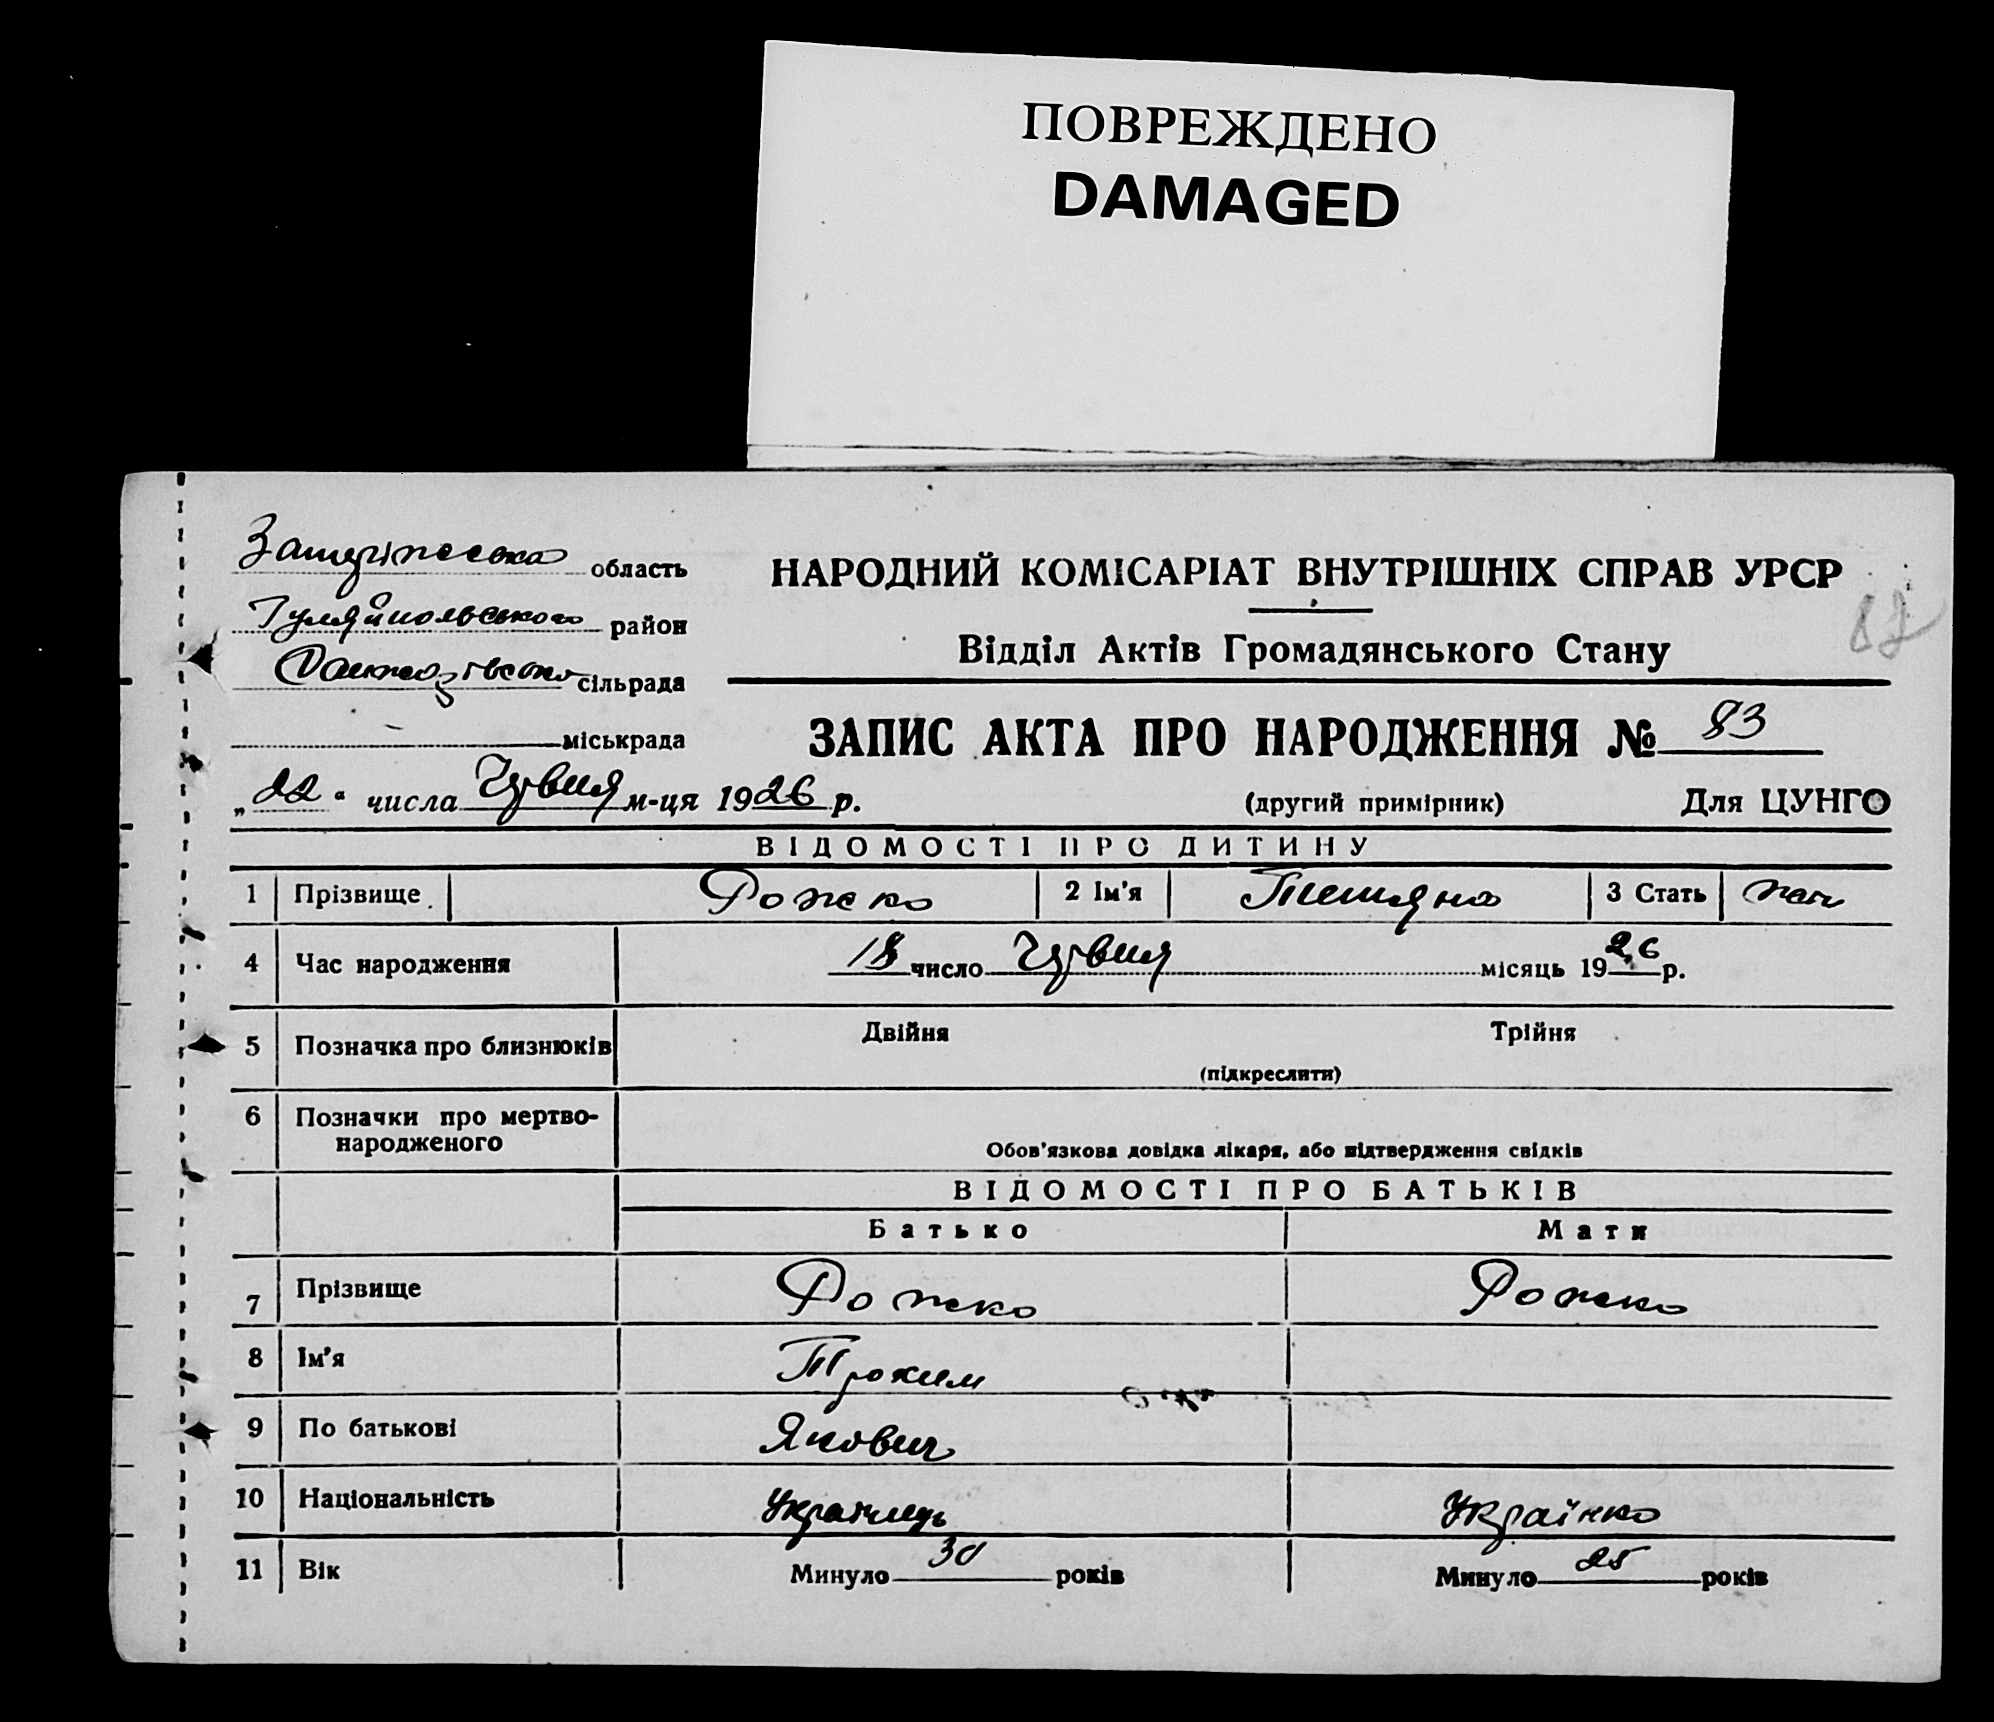 ПОВРЕЖДЕНО
DAMAGED
область
Гуляйпольського район
сільрада
міськрада
НАРОДНИЙ КОМІСАРІАТ ВНУТРІШНІХ СПРАВ УРСР
Відділ Актів Громадянського Стану
ЗАПИС АКТА ПРО НАРОДЖЕННЯ № 83
„22“ числа Червня м-ця 1926 р.
(другий примірник) Для ЦУНГО
ВІДОМОСТІ ПРО ДИТИНУ
1 Прізвище Рожко 2 Ім'я 3 Стать
4 Час народження 18 число Червня місяць 1926 р.
5 Позначка про близнюків Двійня Трійня
(підкреслити)
6 Позначки про мертво-
народженого
Обов'язкова довідка лікаря, або підтвердження свідків
ВІДОМОСТІ ПРО БАТЬКІВ
Батько Мати
7 Прізвище Рожко Рожко
8 Ім'я Трохим
9 По батькові Якович
10 Національність Українець Українка
11 Вік Минуло 30 років Минуло 25 років